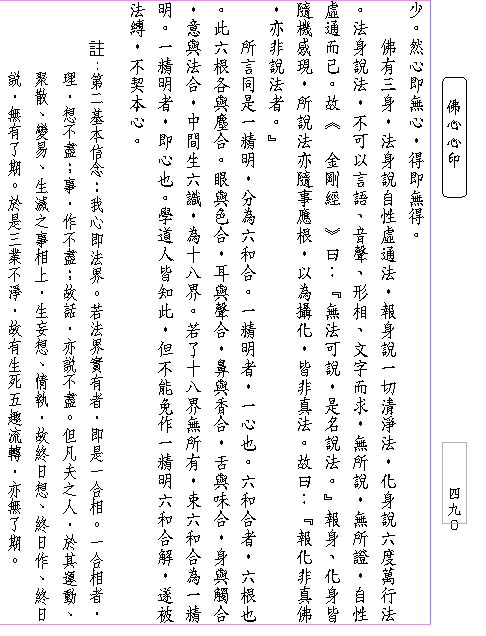 佛心心印
四九〇
少。然心即無心，得即無得。
佛有三身，法身說自性虛通法，報身說一切清淨法，化身說六度萬行法
。法身說法，不可以言語、音聲、形相、文字而求，無所說，無所證，自性
虛通而已。故《 金剛經 》曰：『無法可說，是名說法。』報身、化身皆
隨機感現，所說法亦隨事應根，以為攝化，皆非真法。故曰：『報化非真佛
，亦非說法者。』
所言同是一精明，分為六和合。一精明者，一心也。六和合者，六根也
。此六根各與塵合。眼與色合，耳與聲合，鼻與香合，舌與味合，身與觸合
，意與法合，中間生六識，為十八界。若了十八界無所有，束六和合為一精
明。一精明者，即心也。學道人皆知此，但不能免作一精明六和合解，遂被
法縛，不契本心。
註：第二基本信念：我心即法界。若法界實有者，即是一合相。一合相者，
理，想不盡；事，作不盡；故話，亦說不盡。但凡夫之人，於其運動、
聚散、變易、生滅之事相上，生妄想、情執，故終日想、終日作、終日
說，無有了期。於是三業不淨，故有生死五趣流轉，亦無了期。